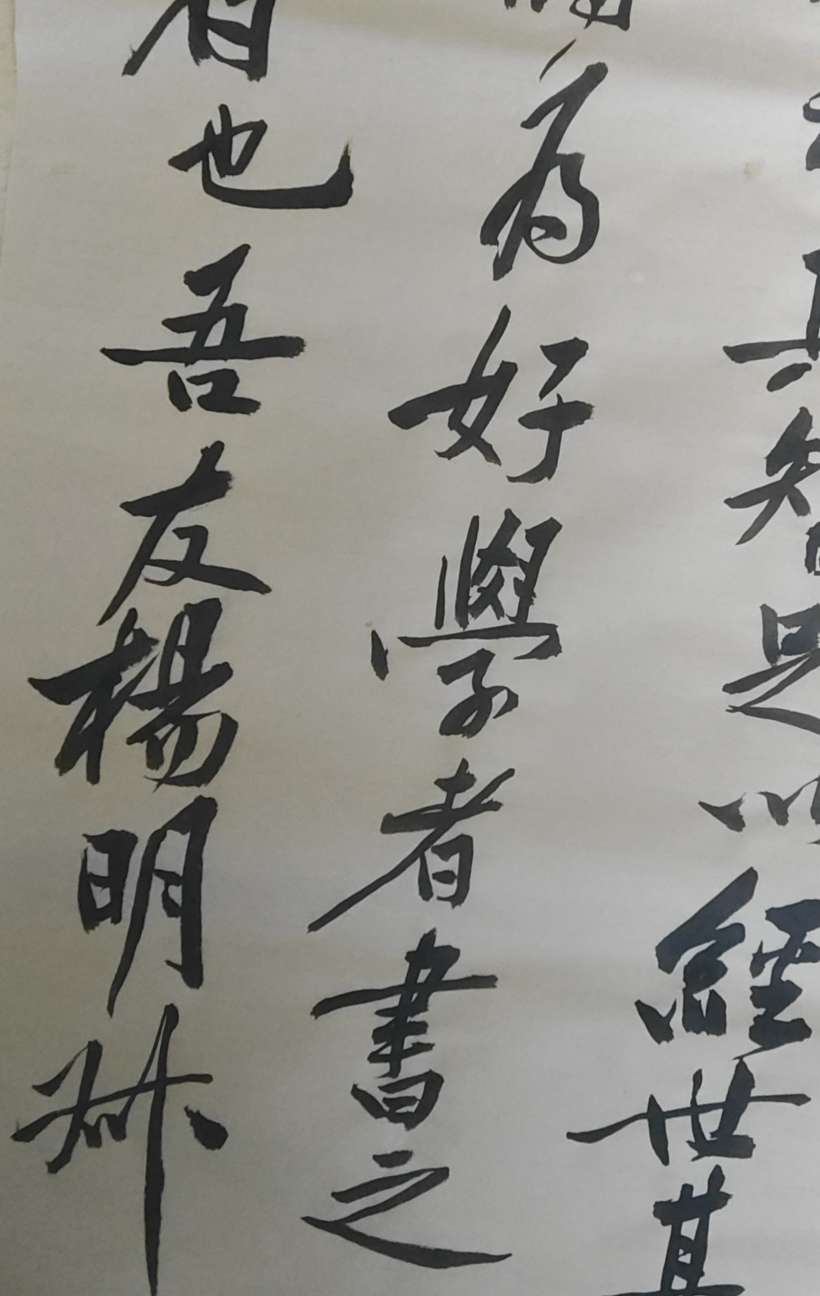 其智足以經世其
為好學者書之
者也吾友楊明